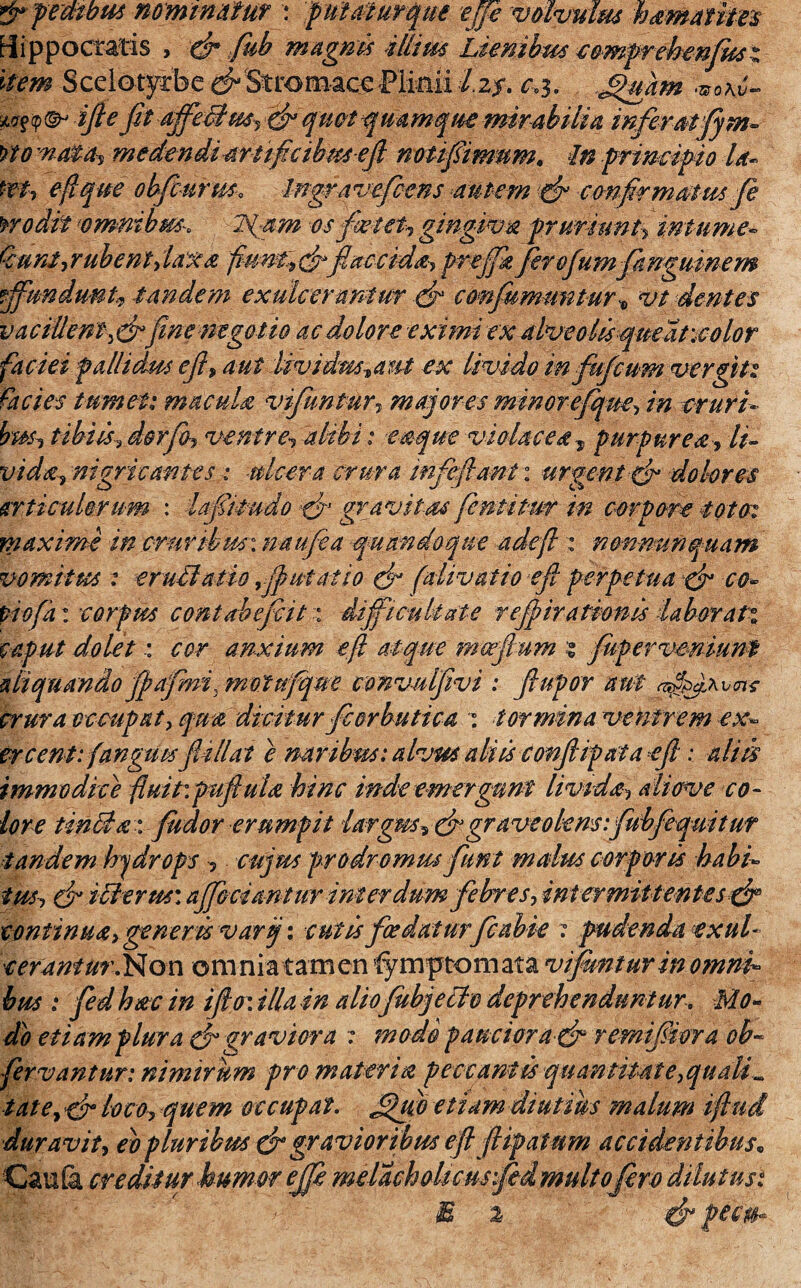 & pedibus nominatur : putaturque esse volvulus hæmatites
Hippocratis , & sub magnis illius Lienibus comprehensus:
item Scelotyrbe & Stromacce Plinii l.25. c.3. Quàm πολύ-
iste sit affectus, & quot quamque mirabilia inferat sym-
ptomata, medendi artificibus est notissimum. In principio la-
tet, estque obscurus. Ingravescens autem & confirmatus se
prodit omnibus. Nam os fœtet, gingivæ pruriunt, intume-
scunt, rubent, laxæ fiunt, & flaccidæ, pressæ serosum sanguinem
effundunt, tandem exulcerantur & consumuntur, vt dentes
vacillent, & sine negotio ac dolore eximi ex alveolis queāt: color
faciei pallidus est, aut lividus, aut ex livido in fuscum vergit:
facies tumet: maculæ visuntur, majores minoresque, in cruri-
bus, tibiis, dorso, ventre, alibi : eæque violaceæ, purpureæ, li-
vidæ, nigricantes : ulcera crura infestant : urgent & dolores
articulorum : lassitudo & gravitas sentitur in corpore toto:
maximè in cruribus: nausea quandoque adest : nonnunquam
vomitus : eructatio, sputatio & salivatio est perpetua & co-
piosa : corpus contabescit : difficultate respirationis laborat:
caput dolet : cor anxium est atque mœstum : superveniunt
aliquando spasmi, motusque convulsivi : stupor aut παράλυσις
crura occupat, quæ dicitur scorbutica : tormina ventrem ex-
ercent: sanguis stillat è naribus: alvus aliis constipata est : aliis
immodicè fluit: pustulæ hinc inde emergunt lividæ, aliove co-
lore tinctæ : sudor erumpit largus, & graveolens: subsequitur
tandem hydrops , cujus prodromus sunt malus corporis habi-
tus, & icterus: associantur interdum febres, intermittentes &
continuæ, generis varij : cutis fœdatur scabie : pudenda exul-
cerantur. Non omnia tamen symptomata visuntur in omni-
bus : sed hæc in isto: illa in alio subjecto deprehenduntur. Mo-
dò etiam plura & graviora : modò pauciora & remissiora ob-
servantur: nimirùm pro materiæ peccantis quantitate, quali-
tate, & loco, quem occupat. Quò etiam diutiùs malum istud
duravit, eò pluribus & gravioribus est stipatum accidentibus.
Causa creditur humor esse melācholicus: sed multo sero dilutus:
E 2 & pecu-